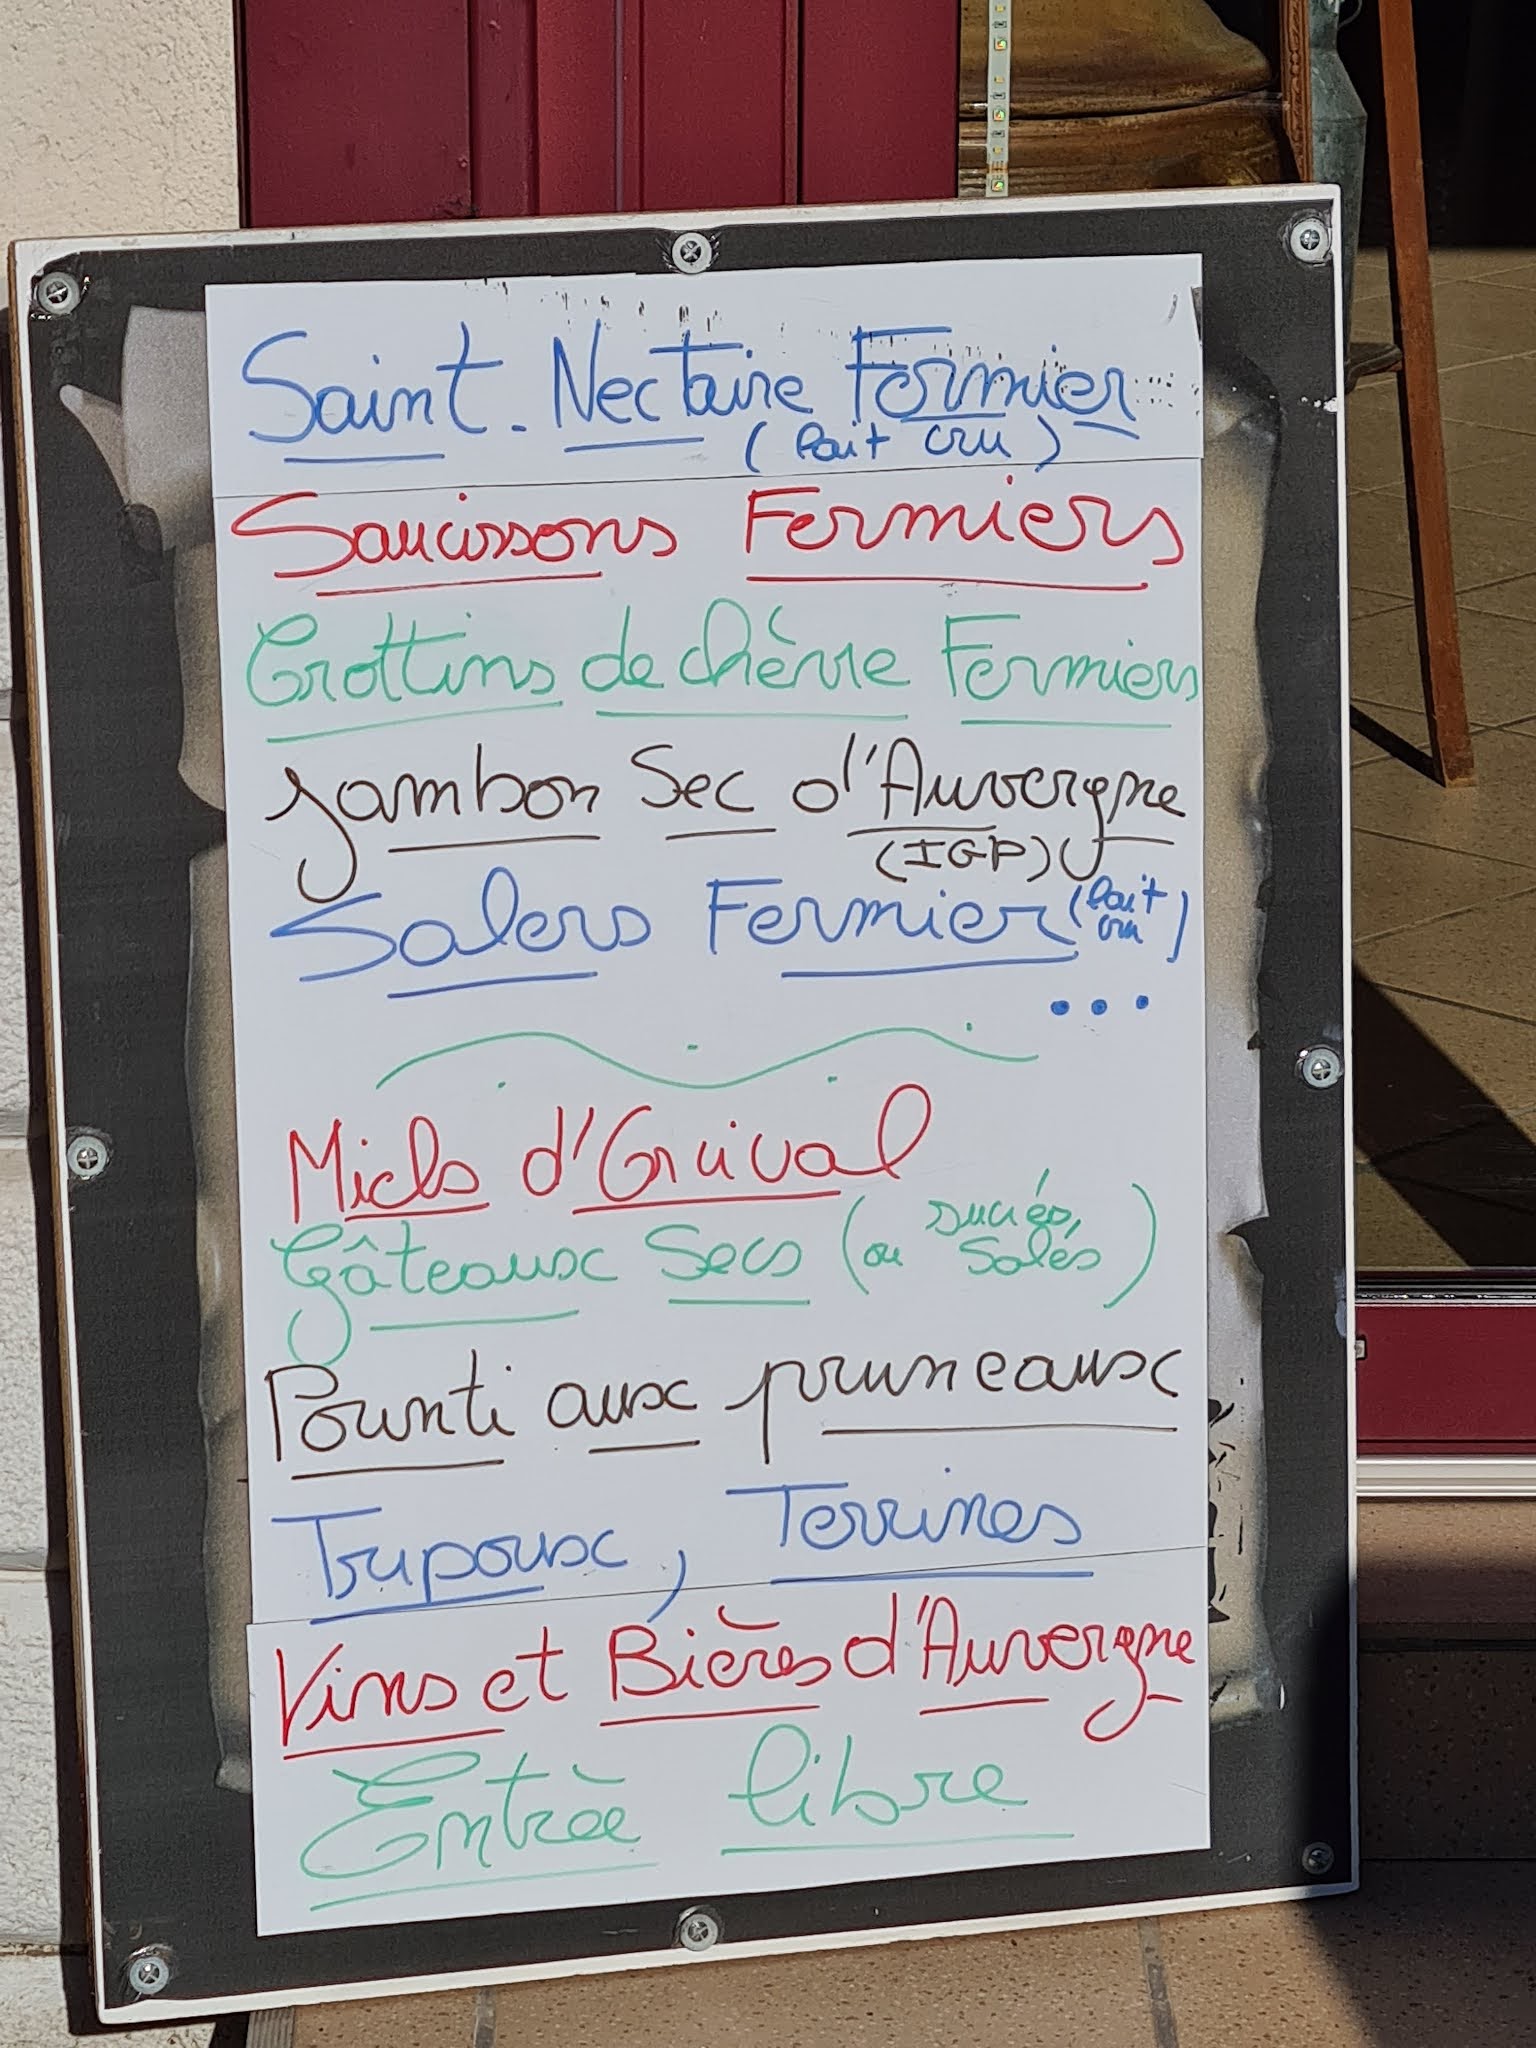 Saint-Nectaire Fermier
(lait cru)
Saucissons Fermiers
Crottins de chèvre Fermiers
Jambon Sec d'Auvergne
(IGP)
Salers Fermier (lait cru)
...
Miels d'Gruival
Gâteaux Secs (ou sucrés, salés)
Pounti aux pruneaux
Tripoux, Terrines
Vins et Bières d'Auvergne
Entrée libre